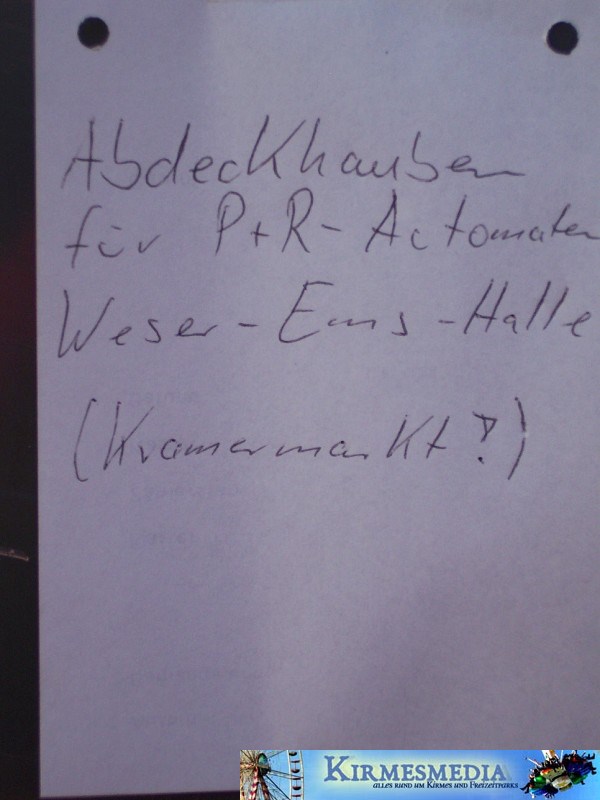 Abdeckhauben
für P+R-Automaten
Weser-Ems-Halle
(Kramermarkt?)
KIRMESMEDIA
ALLES RUND UM KIRMES UND FREIZEITPARKS